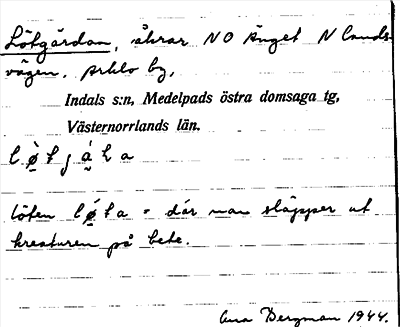 Lötgärdan, åkrar NO Änget N lands-
vägen, Arklo by,
Indals s:n, Medelpads östra domsaga tg,
Västernorrlands län.
löten löta = där man släpper ut
kreaturen på bete.
Ana Bergman 1944.